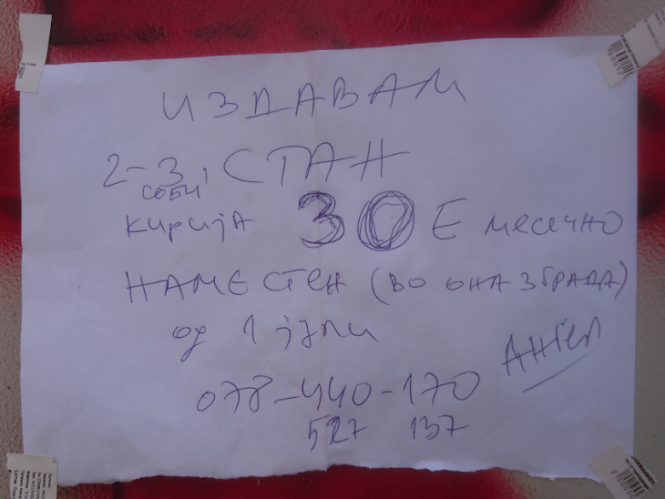 ИЗДАВАМ
2-3 СТАН
СОБИ
КИРИЈА 30 Е МЕСЕЧНО
НАМЕСТЕН (ВО ОНА ЗГРАДА)
од 1 јули
АНГЕЛ
078-440-170
527 137